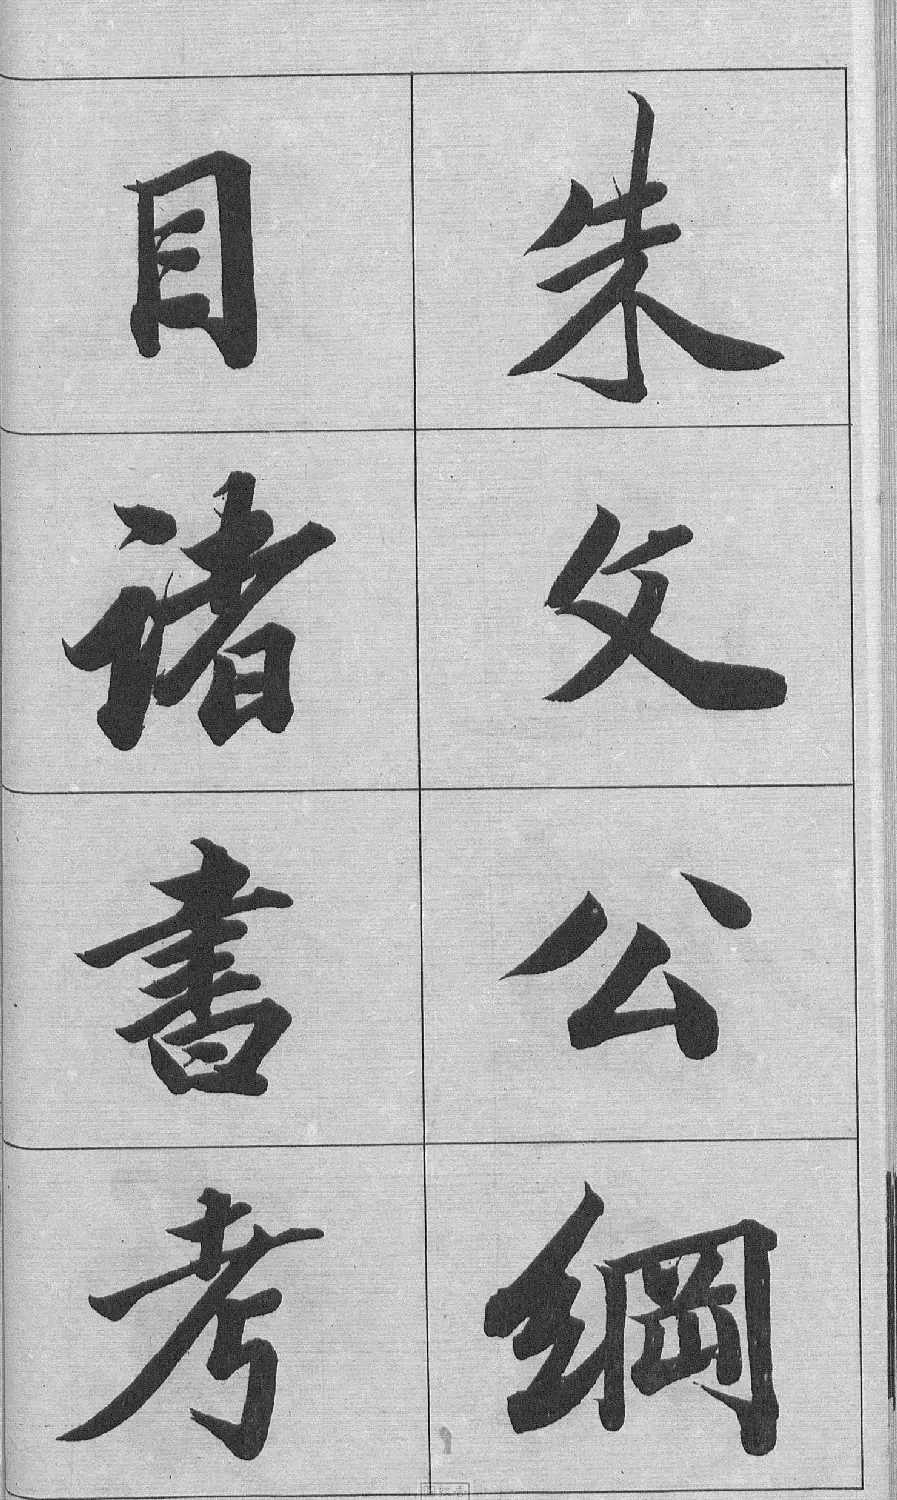 朱文公綱
目諸書考